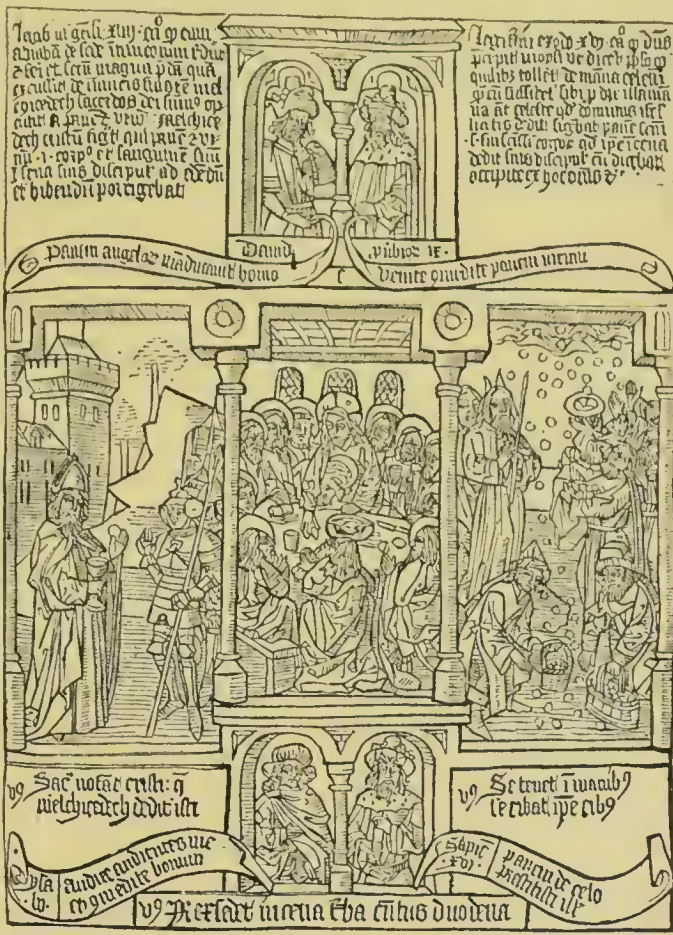 Legit in gen xiiii ca° q cum
abrahā de cede inimicorum redir
et secū magnā p̄dā quā
excussit de inimicis suis mel
chisedech sacerdos dei summi op
tulit panē et vinū Melchise
dech cristū figt qui panē et vi
nū .i. corpꝰ et sanguinē suū
ī cena suis discipul ad edēdū
et bibendū porrigebat
Legit in exodo xvi ca° q dn̄s
p̄cepit moysi ut diceret pplo q
quilibꝫ tolleret de manna celesti
sibi p die illa man
na at celeste qd dominus isrl
litis dedit figbat panē scm̄
.s. sui scīssi corpꝰ qd ipe ī cena
dedit suis discipul cū dicebat
accipite ex hoc om̄s
Panem angelorꝫ māducavit homo
David
ꝓverbiorꝫ ix
venite comedite panem meum
vꝰ Sac notat cristi q
melchisedech dedit isti
vꝰ Se tenet ī manibꝰ
se cibat ipe cibꝰ
ysa
lv
audite audientes me
et comedite bonum
Sapiē
xvi
panem de celo
prestitisti ill
vꝰ Rex sedet in cena t̄ba cīctus duodena